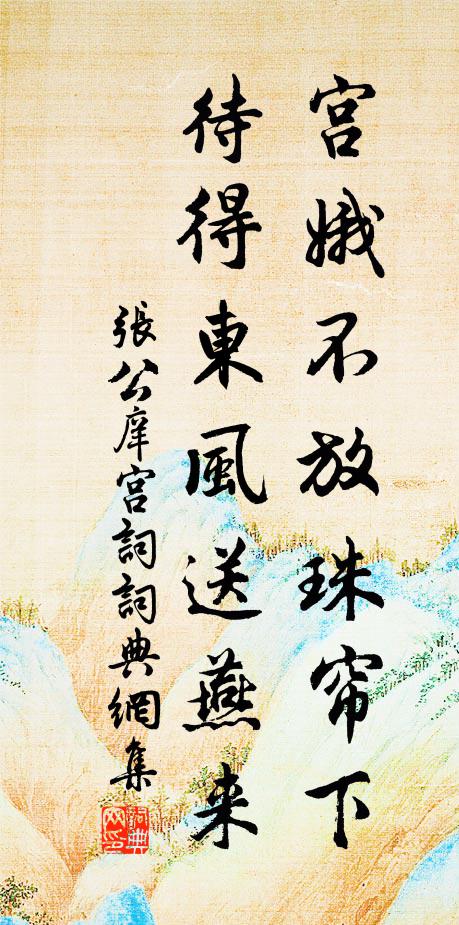 宫娥不放珠帘下
待得東風送燕来
張公庠宫詞詞典網集